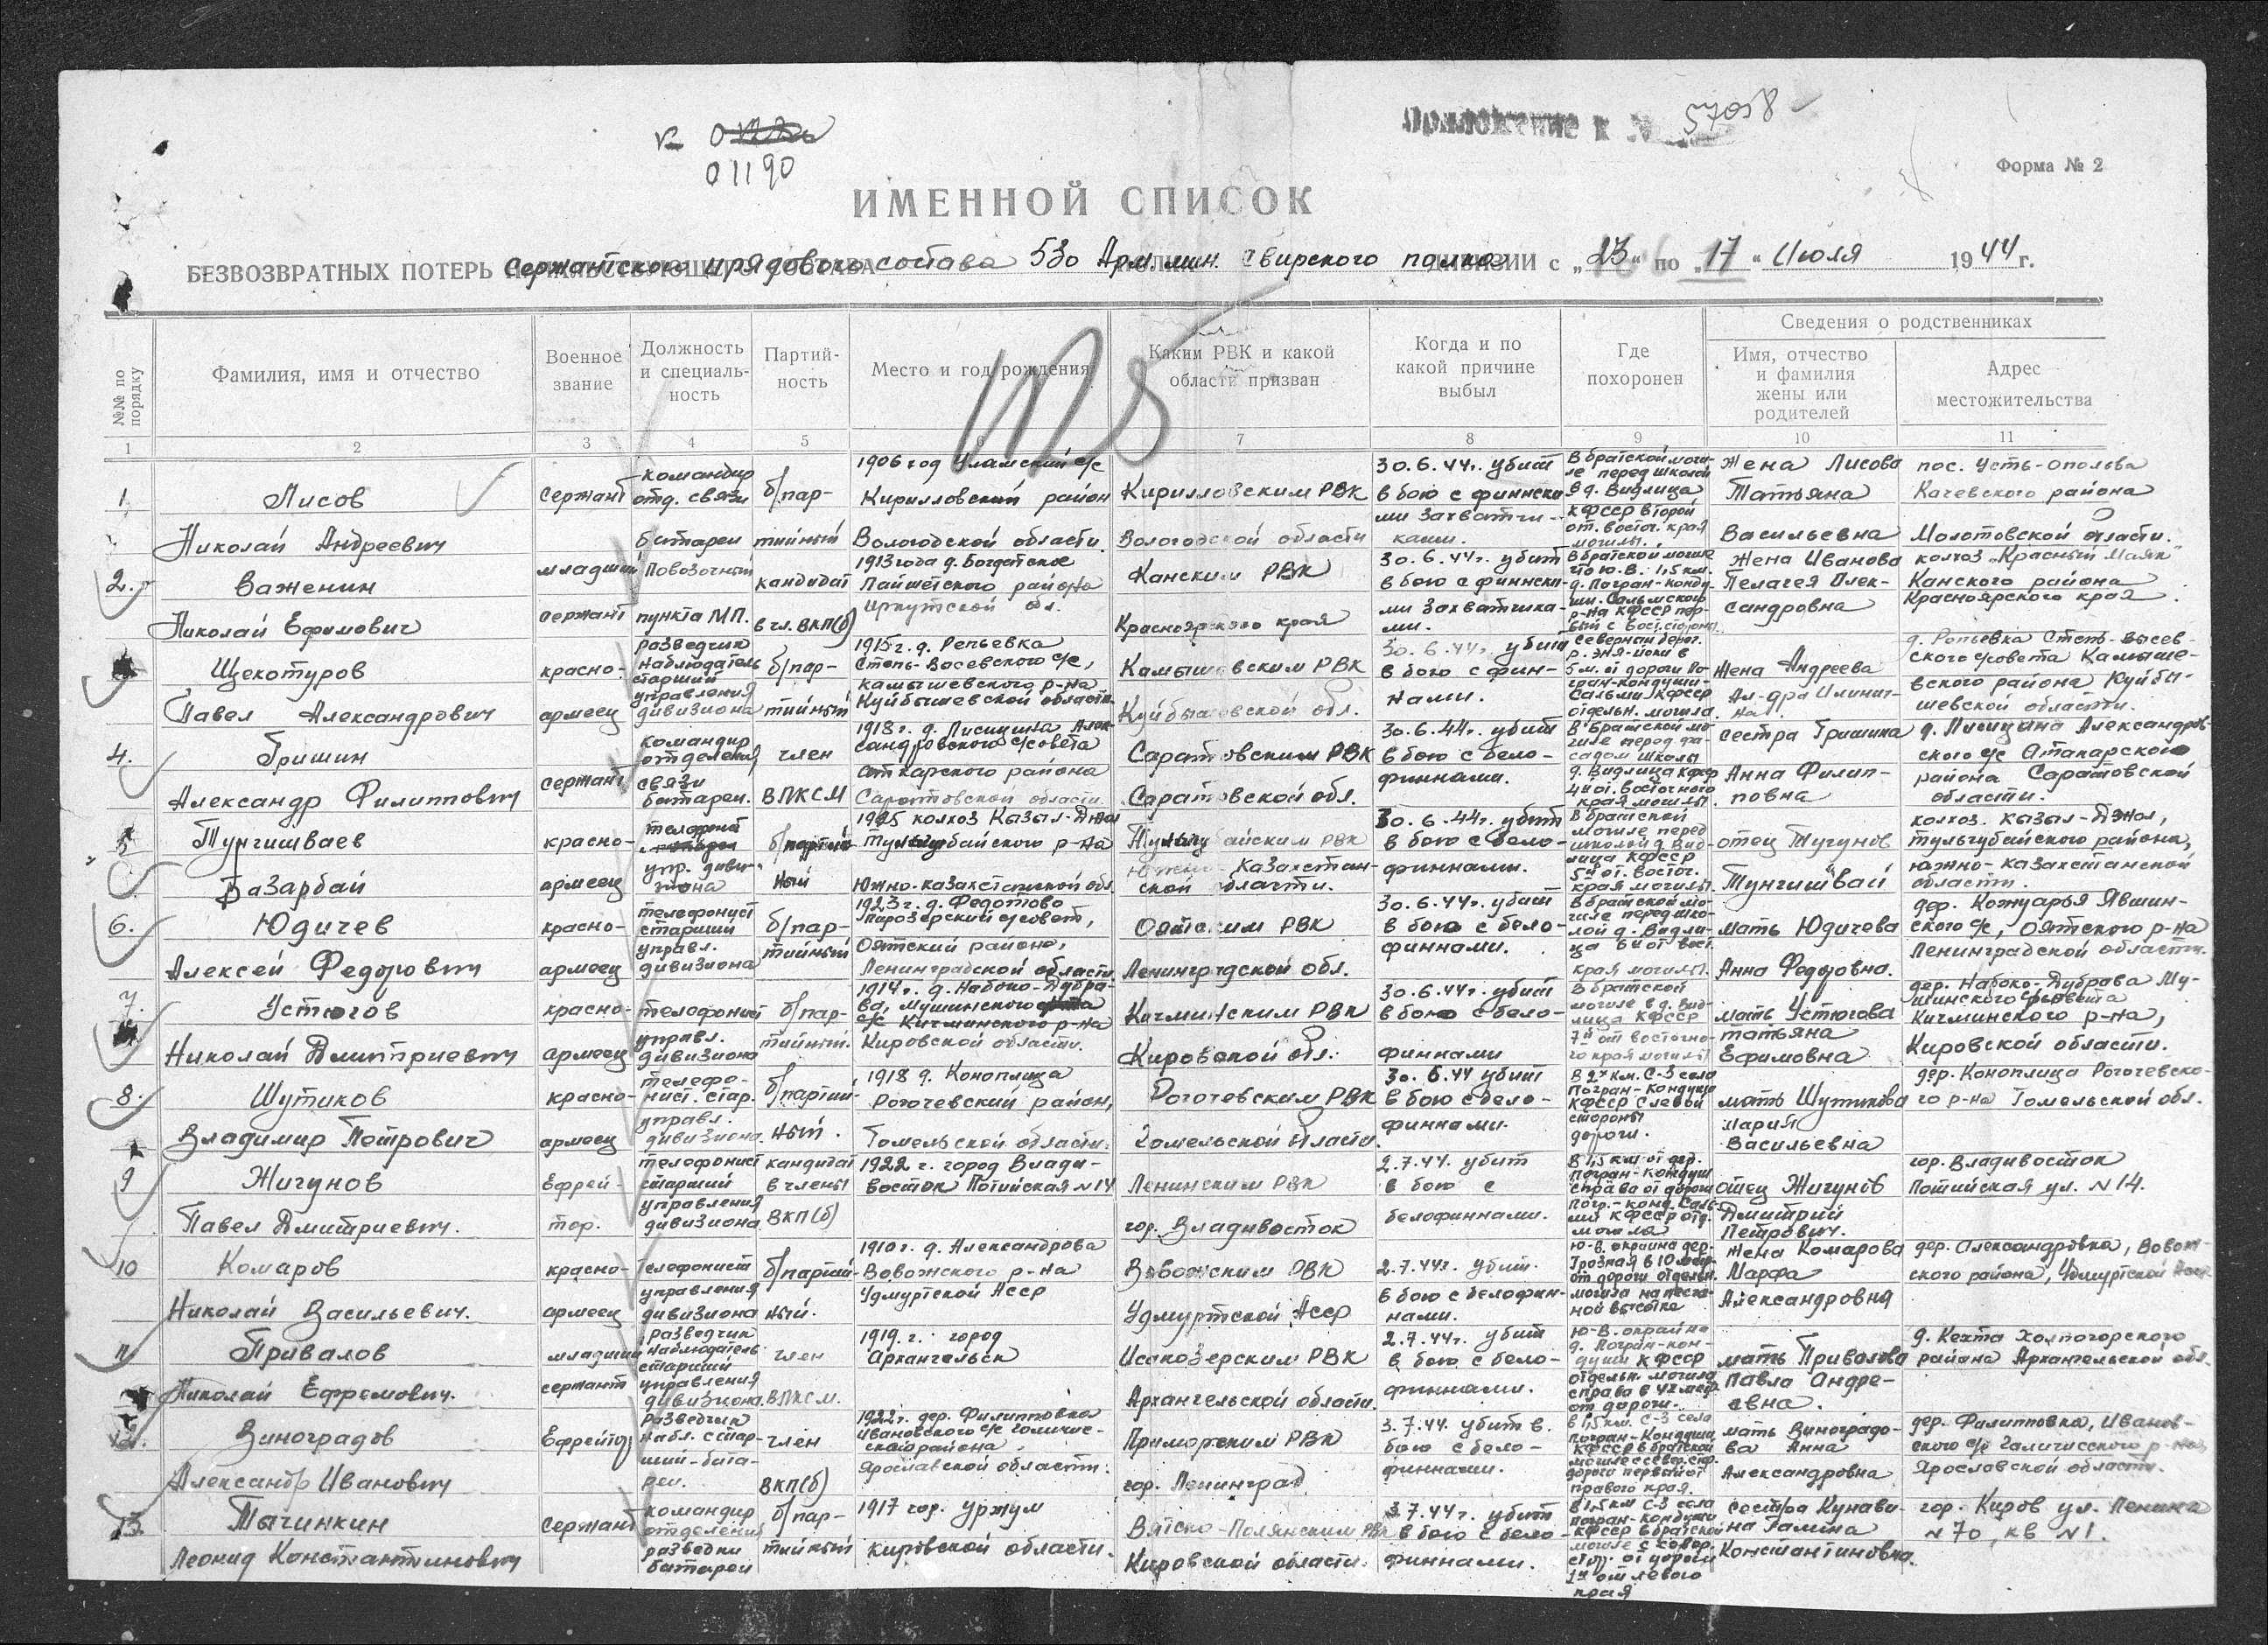 01190
Приложение к № 57058
Форма № 2
ИМЕННОЙ СПИСОК
БЕЗВОЗВРАТНЫХ ПОТЕРЬ сержантского и рядового состава 530 Арм. мин. Свирского полка ДИВИЗИИ с „23“ по „17“ Июля 1944 г.
№№ по порядку
Фамилия, имя и отчество
Военное звание
Должность и специаль-
ность
Партий-
ность
Место и год рождения
Каким РВК и какой
области призван
Когда и по
какой причине
выбыл
Где
похоронен
Сведения о родственниках
Имя, отчество
и фамилия
жены или
родителей
Адрес
местожительства
1 2 3 4 5 6 7 8 9 10 11
125
1
Лисов
Николай Андреевич
сержант
командир
отд. связи
батареи
б/пар-
тийный
1906 год с/с
Кирилловский район
Вологодской области.
Кирилловским РВК
Вологодской области
30.6.44г. убит
в бою с финнски-
ми захватчи-
ками.
В братской моги-
ле перед школой
в д. Видлица
КФССР второй
от. восточ. края
могилы.
Жена Лисова
Татьяна
Васильевна
пос. Усть-
района
Молотовской области.
2.
Важенин
Николай Ефимович
младший
сержант
Повозочный
пункта МП.
кандидат
в чл. ВКП(б)
1913 года д.
района
Иркутской обл.
Канским РВК
Красноярского края
30.6.44г. убит
в бою с финнски-
ми захватчика-
ми.
В братской могиле
Ю.В. 1,5 км.
д. Погран-Конду-
ши. Сальмского
р-на КФССР пер-
вый с вост. стороны
Жена Иванова
Пелагея Алек-
сандровна
колхоз „Красный Маяк“
Канского района
Красноярского края.
Щекотуров
Павел Александрович
красно-
армеец
разведчик
наблюдатель
старший
управления
дивизиона
б/пар-
тийный
1915г. д. Репьевка
Степь- с/с,
Камышевского р-на
Куйбышевской области.
Камышевским РВК
Куйбышевской обл.
30.6.44г. убит
в бою с фин-
нами.
Северный берег.
р.
5 м. от дороги По-
гран-кондуши-
Сальми КФССР
отдельн. могила.
Жена Андреева
Ал-дра Ильинич-
на.
д. Степь-
ского с/совета Камыше-
вского района Куйбы-
шевской области.
4.
Гришин
Александр Филиппович
сержант
командир
отделения
связи
батареи.
член
ВЛКСМ
1918г. д. Лисицина Алек-
сандровского с/совета
Аткарского района
Саратовской области.
Саратовским РВК
Саратовской обл.
30.6.44г. убит
в бою с бело-
финнами.
В братской мо-
гиле перед фа-
садом школы
д. Видлица КФССР
4й от. восточного
края могилы.
сестра Гришина
Анна Филип-
повна
д. Лисицина Александров-
ского с/с Аткарского
района Саратовской
области.
5
Тунгишваев
Базарбай
красно-
армеец
телефонист
упр. диви-
зиона
б/партий-
ный
1925 колхоз Кызыл-
р-на
Южно-казахстанской обл.
РВК
Южно-Казахстан-
ской области.
30.6.44г. убит
в бою с бело-
финнами.
В братской
могиле перед
школой д. Вид-
лица КФССР
5й от. восточ.
края могилы.
отец Тугунов
Тунгишвай
колхоз. Кызыл-
района,
Южно-казахстанской
области.
6.
Юдичев
Алексей Федорович
красно-
армеец
телефонист
старший
управл.
дивизиона
б/пар-
тийный
1923г. д. Федотово
с/совет,
Оятский район,
Ленинградской области.
Оятским РВК
Ленинградской обл.
30.6.44г. убит
в бою с бело-
финнами.
В братской мо-
гиле перед шко-
лой д. Видли-
ца 6й от вост.
края могилы.
мать Юдичева
Анна Федоровна.
дер. Явшин-
ского с/с, Оятского р-на
Ленинградской области.
7.
Устюгов
Николай Дмитриевич
красно-
армеец
телефонист
управл.
дивизиона
б/пар-
тийный.
1914г. д. Набоко-Дубра-
ва, Мушинского
с/с Кичминского р-на
Кировской области.
Кичминским РВК
Кировской обл.
30.6.44г. убит
в бою с бело-
финнами
В братской
могиле в д. Вид-
лица КФССР
7й от восточно-
го края могилы
мать Устюгова
Татьяна
Ефимовна
дер. Набоко-Дубрава Му-
шинского с/совета
Кичминского р-на,
Кировской области.
8.
Шутиков
Владимир Петрович
красно-
армеец
телефо-
нист. стар.
управл.
дивизиона.
б/партий-
ный.
1918 д. Коноплица
Рогочевский район,
Гомельской области.
Рогочевским РВК
Гомельской области.
30.6.44 убит
в бою с бело-
финнами.
В 2х км. С-З села
Погран-Кондуши
КФССР с левой
стороны
дороги.
мать Шутикова
Мария
Васильевна
дер. Коноплица Рогочевско-
го р-на Гомельской обл.
9
Жигунов
Павел Дмитриевич.
Ефрей-
тор.
телефонист
старший
управления
дивизиона
кандидат
в члены
ВКП(б)
1922 г. город Влади-
восток Потийская №14
Ленинским РВК
гор. Владивосток
2.7.44. убит
в бою с
белофиннами.
В 1,5 км от
Погран-Кондуш
справа от дороги
погр.-конд. Саль-
ми КФССР отд.
могила
отец Жигунов
Дмитрий
Петрович.
гор. Владивосток
Потийская ул. №14.
10
Комаров
Николай Васильевич.
красно-
армеец
телефонист
управления
дивизиона
б/партий-
ный.
1910г. д. Александрова
Вовожского р-на
Удмуртской АССР
Вовожским РВК
Удмуртской АССР
2.7.44г. убит.
в бою с белофин-
нами.
Ю-В. окраина дер.
Грозная в 10
от дороги отдельн.
могила на песча-
ной высотке
Жена Комарова
Марфа
Александровна
дер. Александровка, Вовож-
ского района, Удмуртской АССР
11
Привалов
Николай Ефремович.
младший
сержант
разведчик
наблюдатель
старший
управления
дивизиона.
член
ВЛКСМ.
1919. г. город
Архангельск
Исакозерским РВК
Архангельской области.
2.7.44г. убит
в бою с бело-
финнами.
Ю-В. окраина
д. Погран-кон-
души КФССР
отдельн. могила
справа в
от дороги.
мать Привалова
Павла Андре-
евна.
д. Кехта Холмогорского
района Архангельской обл.
12.
Виноградов
Александр Иванович
Ефрейтор
разведчик
набл. стар-
ший-бата-
реи.
член
ВКП(б)
1922г. дер. Филипповка
Ивановского с/с
района
Ярославской области.
Приморским РВК
гор. Ленинград
3.7.44. убит в.
бою с бело-
финнами.
в 1,5 км. С-З села
Погран-Кондуши
КФССР в братской
могиле с север. стр.
дороги первый от
правого края.
мать Виноградо-
ва Анна
Александровна
дер. Филипповка, Иванов-
ского с/с р-на
Ярославской области.
13.
Тычинкин
Леонид Константинович
сержант
командир
отделения
разведки
батареи
б/пар-
тийный
1917 гор. Уржум
Кировской области.
Вятско-Полянским РВК
Кировской области.
3.7.44г. убит
в бою с бело-
финнами.
В 1,5 км С-З села
погран-кондуши
КФССР в братской
могиле с север.
стор. от дороги
от левого
края
сестра Кунави-
на Галина
Константиновна.
гор. Киров ул. Ленина
№70, кв №1.